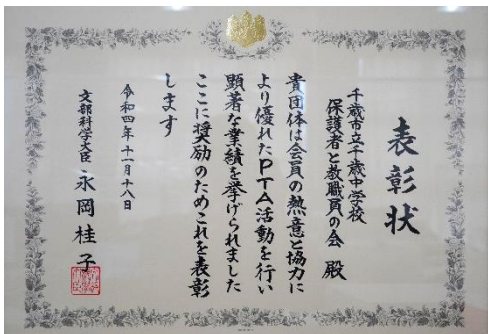 表彰状
千歳市立千歳中学校
保護者と教職員の会 殿
貴団体は会員の熱意と協力に
より優れたPTA活動を行い
顕著な業績を挙げられました
ここに奨励のためこれを表彰
します
令和四年十一月十八日
文部科学大臣 永岡桂子